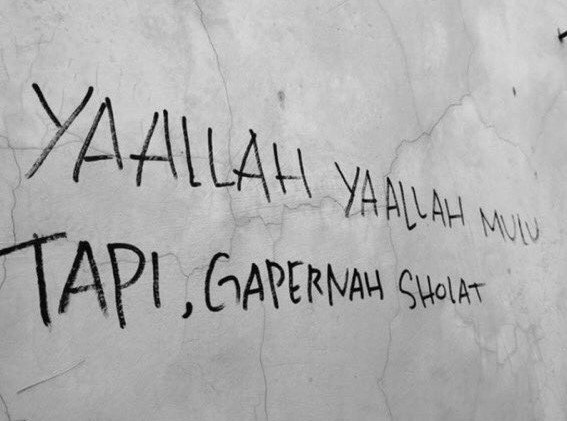 YAALLAH YAALLAH MULU
TAPI, GAPERNAH SHOLAT